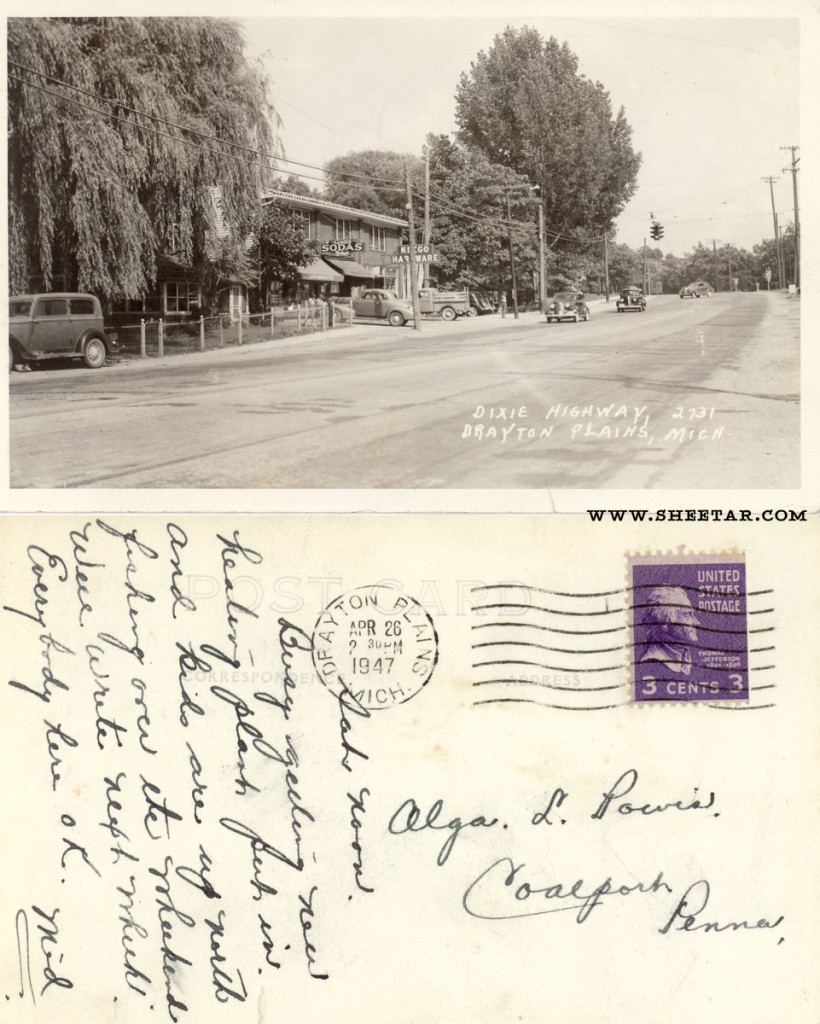 SODAS
KEEGO
HARDWARE
DIXIE HIGHWAY, 2731
DRAYTON PLAINS, MICH
WWW.SHEETAR.COM
POST CARD
CORRESPONDENCE
ADDRESS
DRAYTON PLAINS
APR 26
2 30 PM
1947
MICH.
UNITED
STATES
POSTAGE
THOMAS
JEFFERSON
3 CENTS 3
Sat. noon.
Busy getting new
heating plant put in.
and kids are up north
fishing over the wheekend
Well write next wheek.
Everybody here OK. Mid
Alga. L. Powis.
Coalport
Penna,